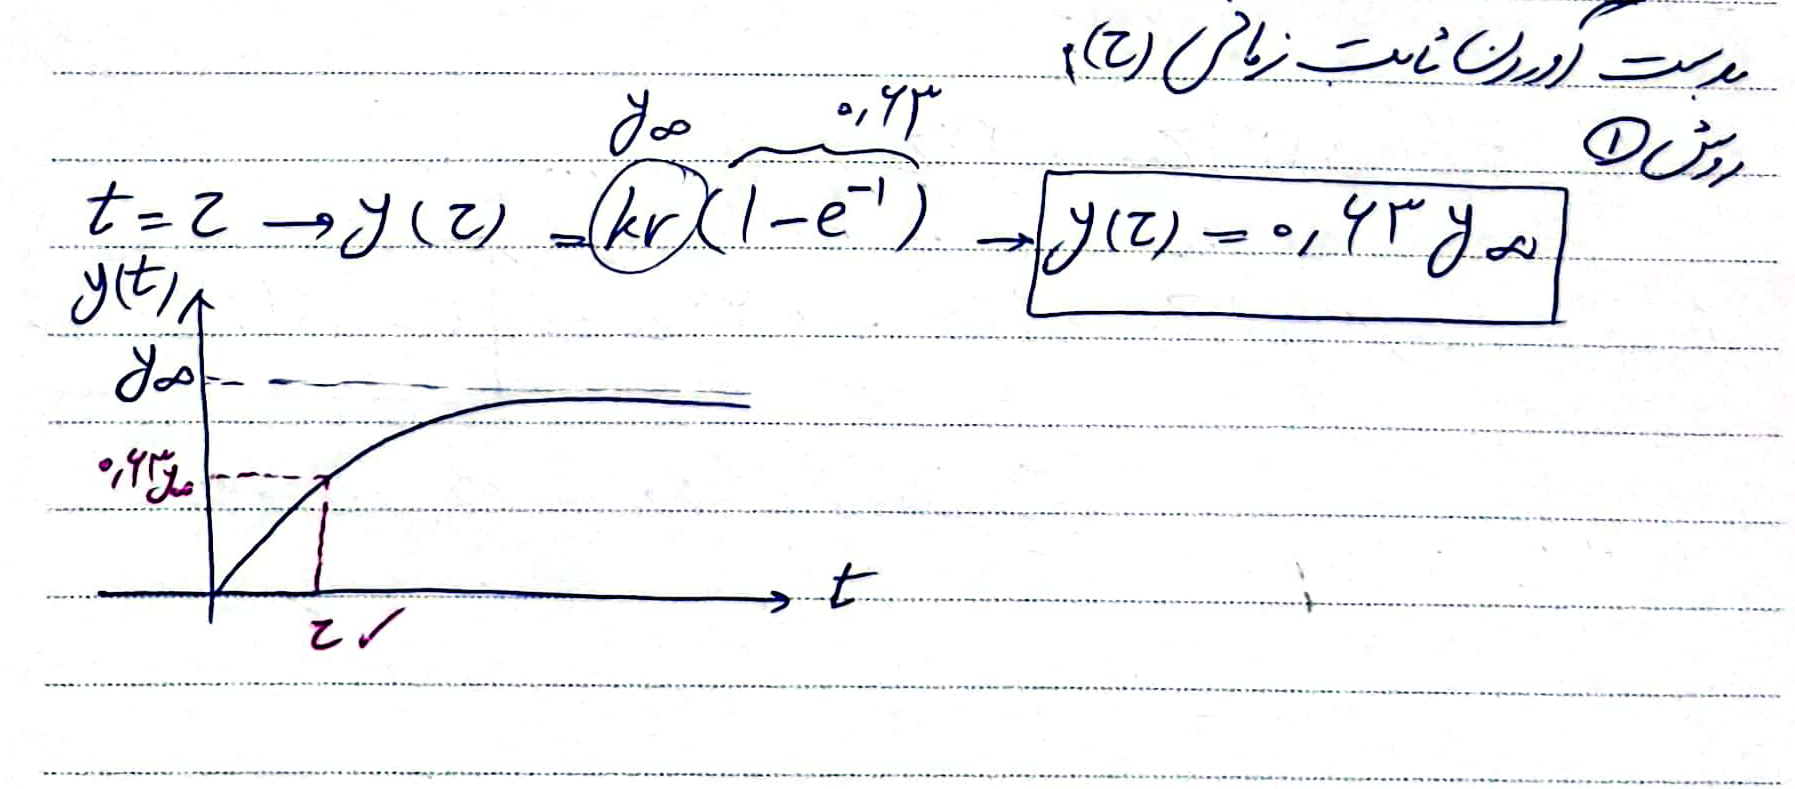 بدست آوردن ثابت زمانی (τ):
روش ①
y∞ ۰٫۶۳
t = τ → y(τ) = kr(1-e⁻¹) → y(τ) = ۰٫۶۳ y∞
y(t)
y∞
۰٫۶۳y∞
t
τ ✓